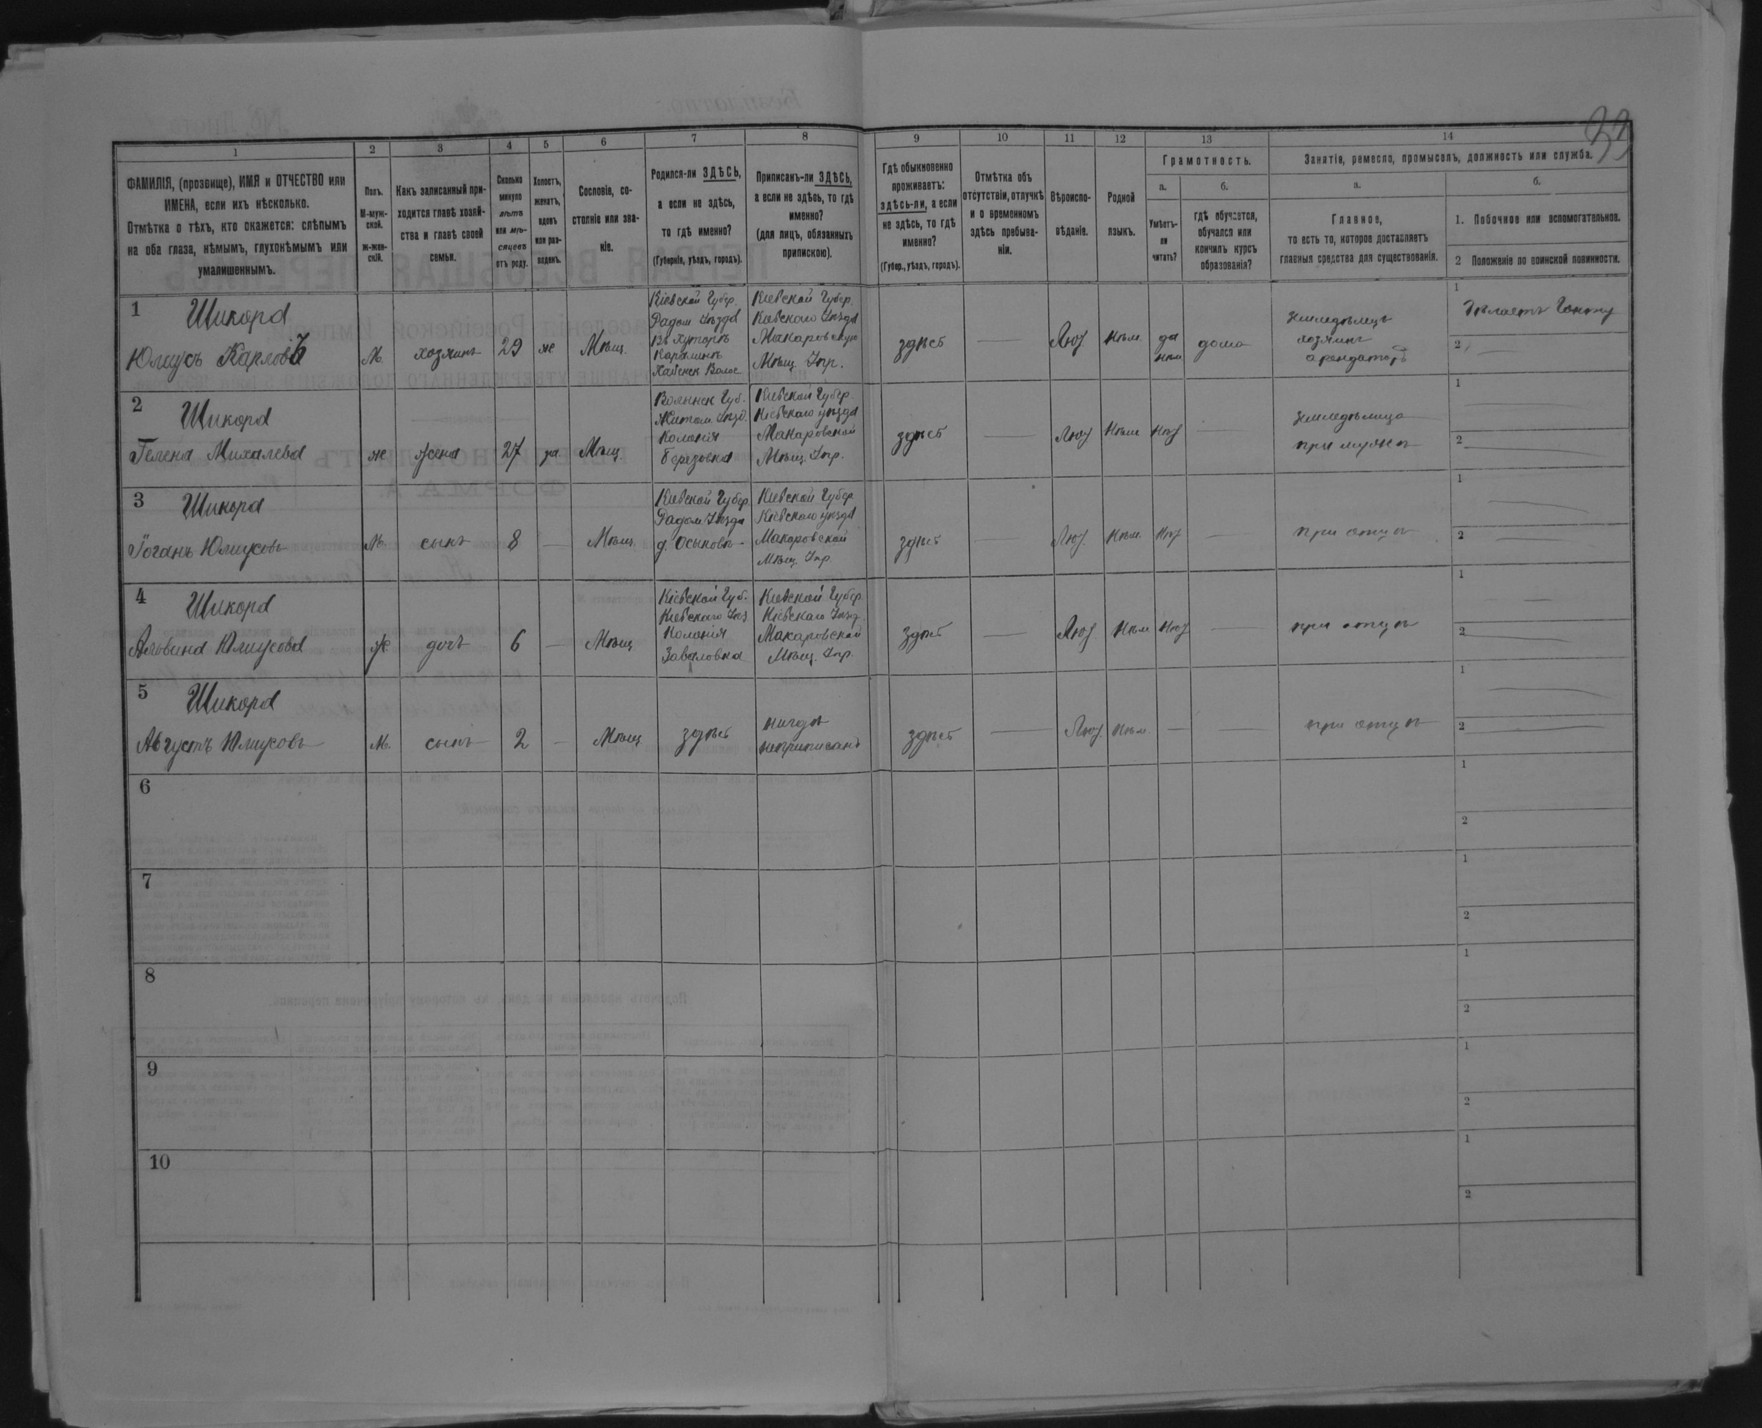 33
1
2
3
4
5
6
7
8
9
10
11
12
13
14
ФАМИЛІЯ, (прозвище), ИМЯ и ОТЧЕСТВО или
ИМЕНА, если ихъ нѣсколько.
Отмѣтка о тѣхъ, кто окажется: слѣпымъ
на оба глаза, нѣмымъ, глухонѣмымъ или
умалишеннымъ.
Полъ.
М-муж-
ской.
ж-жен-
скій.
Какъ записанный при-
ходится главѣ хозяй-
ства и главѣ своей
семьи.
Сколько
минуло
лѣтъ
или мѣ-
сяцевъ
отъ роду.
Холостъ,
женатъ,
вдовъ
или раз-
веденъ.
Сословіе, со-
стояніе или зва-
ніе.
Родился-ли ЗДѢСЬ,
а если не здѣсь,
то гдѣ именно?
(Губернія, уѣздъ, городъ).
Приписанъ-ли ЗДѢСЬ,
а если не здѣсь, то гдѣ
именно?
(для лицъ, обязанныхъ
припискою).
Гдѣ обыкновенно
проживаетъ:
здѣсь-ли, а если
не здѣсь, то гдѣ
именно?
(Губер., уѣздъ, городъ).
Отмѣтка объ
отсутствіи, отлучкѣ
и о временномъ
здѣсь пребыва-
ніи.
Вѣроиспо-
вѣданіе.
Родной
языкъ.
Грамотность.
а.
Умѣетъ-
ли
читать?
б.
гдѣ обучается,
обучался или
кончилъ курсъ
образованія?
Занятіе, ремесло, промыселъ, должность или служба.
а.
Главное,
то есть то, которое доставляетъ
главныя средства для существованія.
б.
1. Побочное или вспомогательное.
2 Положеніе по воинской повинности.
1
Шикорд
Юліусъ Карловъ
м.
хозяинъ
29
ж
Мѣщ.
Кіевской Губер.
Радом Уѣзда
Кіевской Губер.
Кіевского Уѣзда
Макаровскую
Мѣщ Упр.
здѣсь
Лют
нѣм
да
нѣм
дома
земледѣлецъ
хозяинъ
арендаторъ
1
2
2
Шикорд
Гелена Михалева
ж
жена
27
за
Мѣщ
Волынск Губ.
Житом Уѣзд.
Колонія
Березовка
Кіевской Губер.
Кіевскаго уѣзда
Макаровской
Мѣщ. Упр.
здѣсь
Лют
нѣм
нѣт
земледѣлица
при мужѣ
1
2
3
Шикорд
Іоганъ Юліусовъ
м.
сынъ
8
Мѣщ
Кіевской Губер
Радом Уѣзда
д. Осыковъ
Кіевской Губер
Кіевскаго уѣзда
Макаровской
Мѣщ. Упр.
здѣсь
Лют.
нѣм.
нѣт
при отцѣ
1
2
4
Шикорд
Альвина Юліусова
ж
дочъ
6
Мѣщ
Кіевской Губ.
Кіевскаго Уѣз
Колонія
Заваловка
Кіевской Губер
Кіевскаго Уѣзд
Макаровской
Мѣщ. Упр.
здѣсь
Лют
нѣм
нѣт
при отцѣ
1
2
5
Шикорд
Августъ Юліусовъ
м.
сынъ
2
Мѣщ
здѣсь
нигдѣ
неприписанъ
здѣсь
Лют.
нѣм.
при отцѣ
1
2
6
1
2
7
1
2
8
1
2
9
1
2
10
1
2